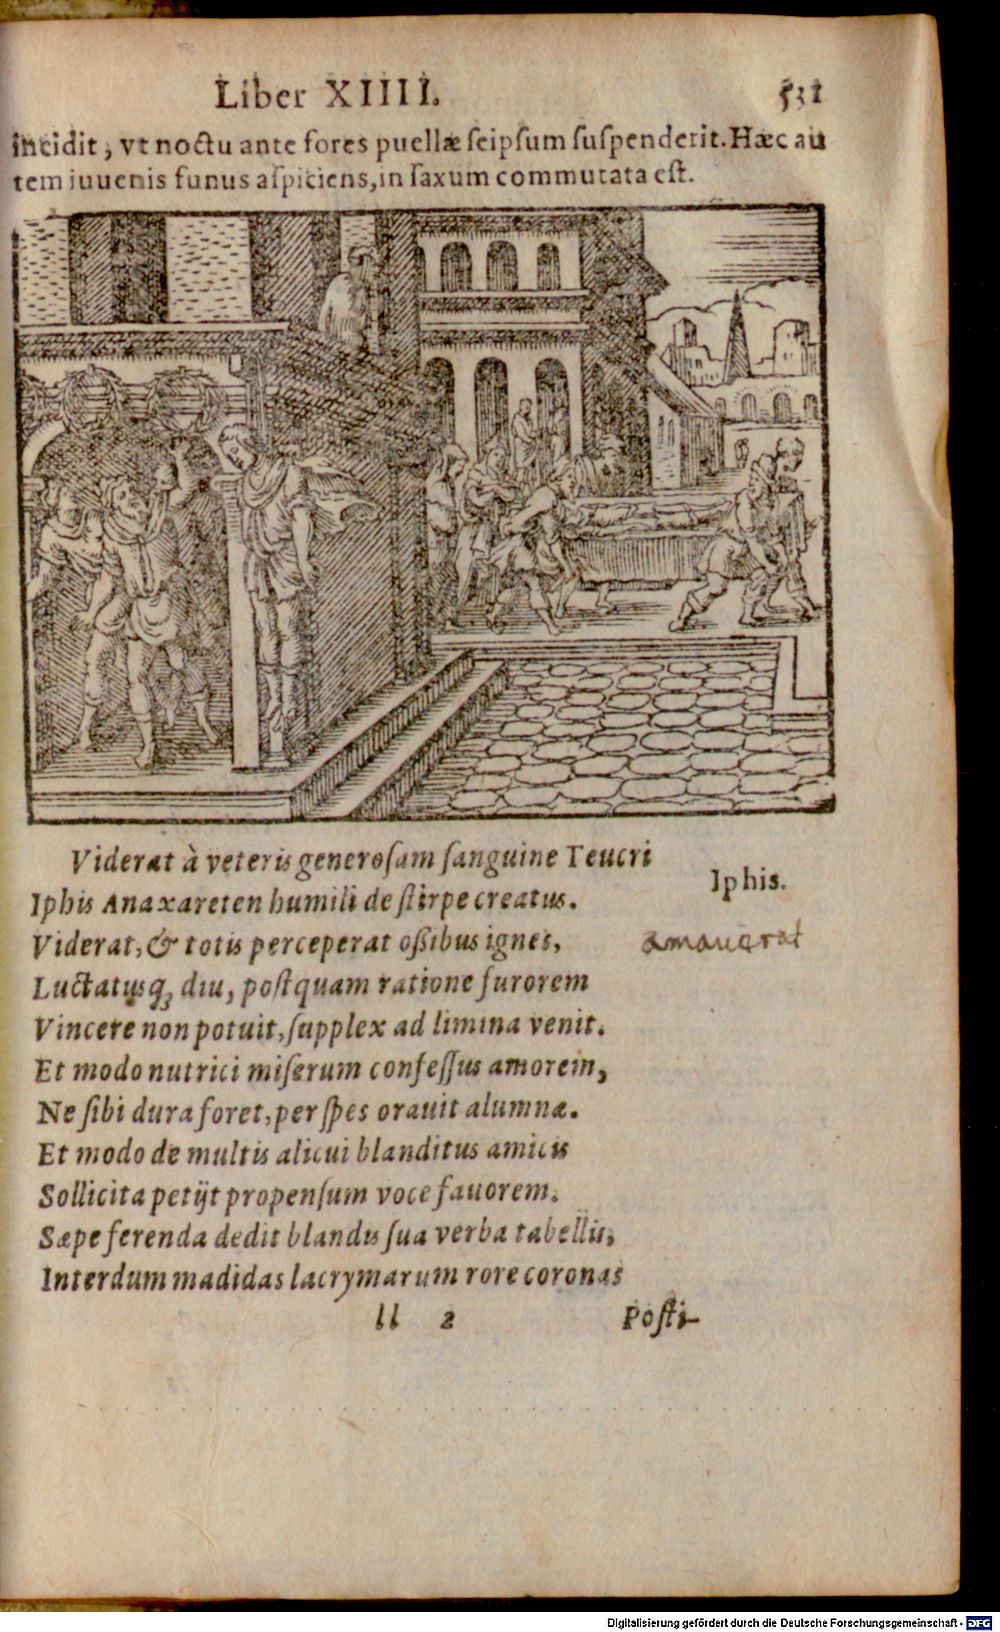 Liber XIIII. 531
incidit, vt noctu ante fores puellæ seipsum suspenderit. Hæc au
tem iuuenis funus aspiciens, in saxum commutata est.
Viderat à veteris generosam sanguine Teucri
Iphis Anaxareten humili de stirpe creatus.
Iphis.
Viderat, & totis perceperat oßibus ignes,
amauerat
Luctatusq; diu, postquam ratione furorem
Vincere non potuit, supplex ad limina venit.
Et modo nutrici miserum confessus amorem,
Ne sibi dura foret, per spes orauit alumnæ.
Et modo de multis alicui blanditus amicis
Sollicita petijt propensum voce fauorem.
Sæpe ferenda dedit blandis sua verba tabellis,
Interdum madidas lacrymarum rore coronas
ll 2 Posti-
Digitalisierung gefördert durch die Deutsche Forschungsgemeinschaft - DFG